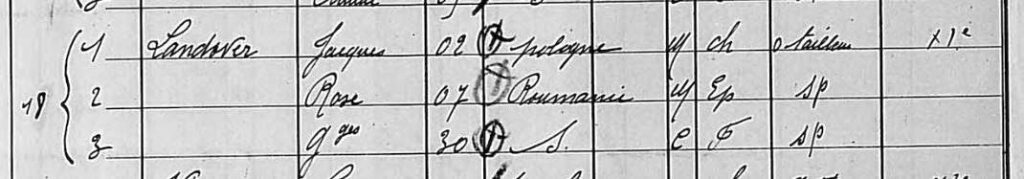 1 Landover Jacques 02 pologne M ch o tailleur x 1e
18 2 Rose 07 Roumanie M Ep sp
3 Gges 30 S. C F sp